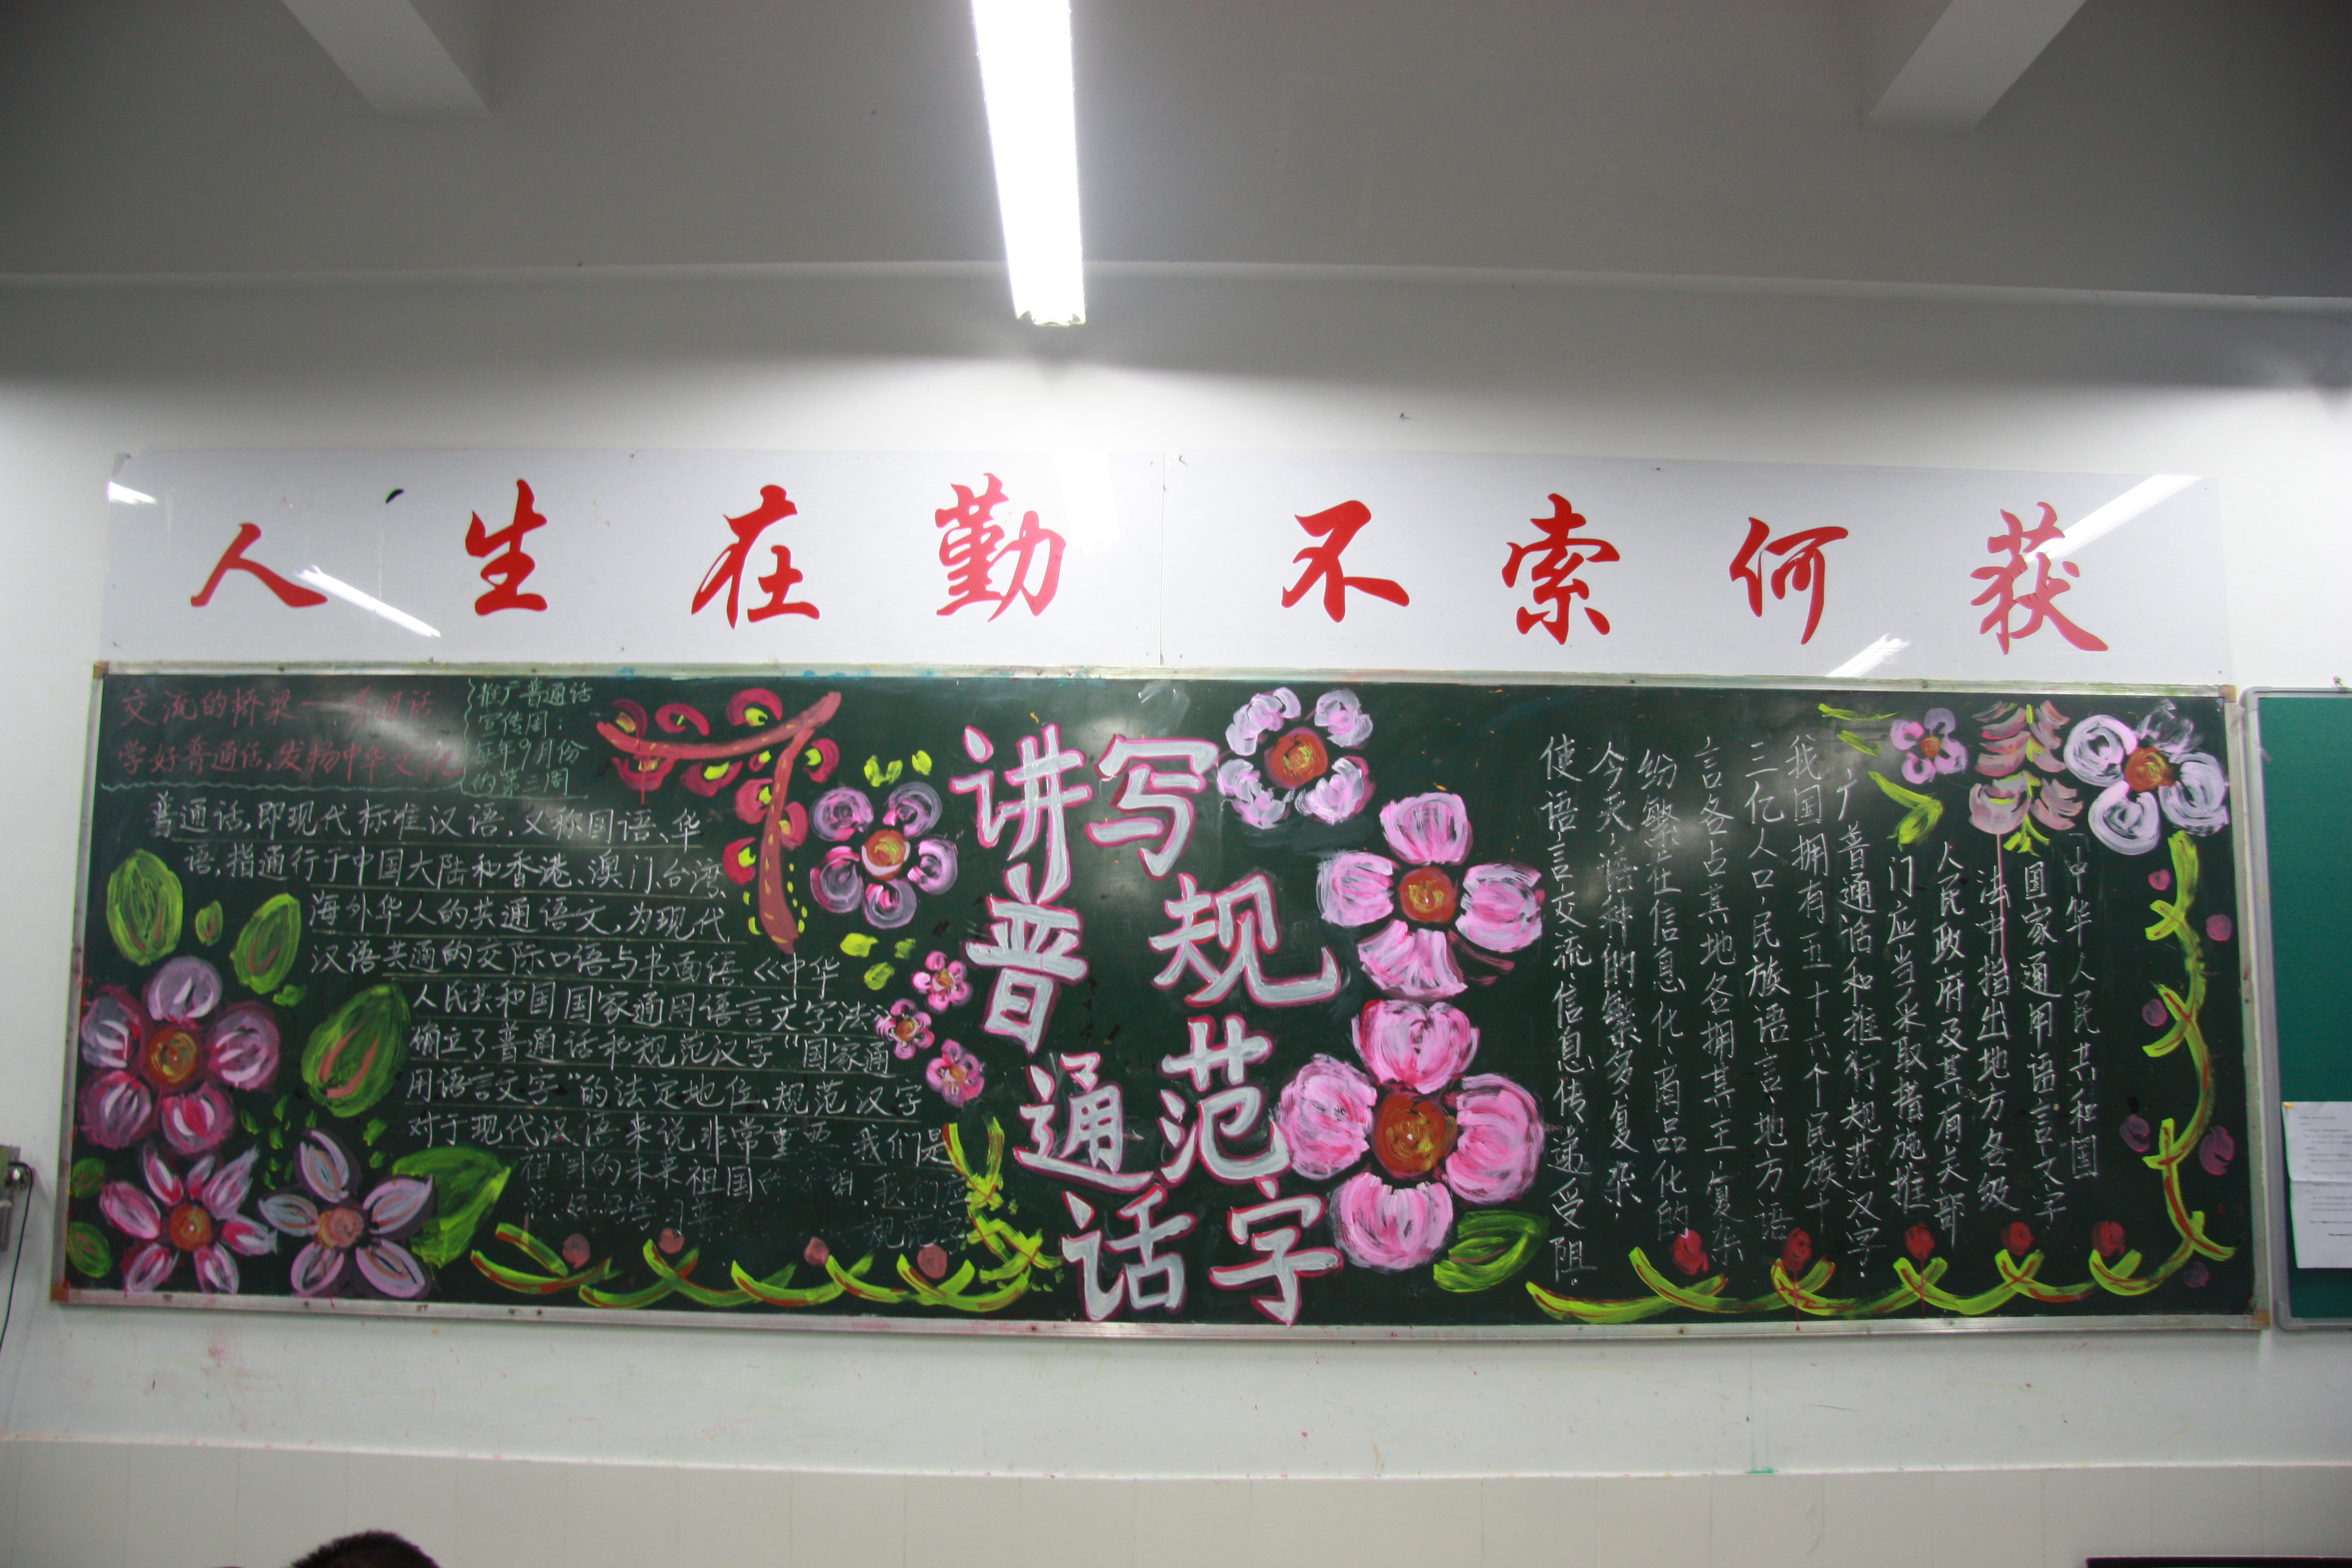 人生在勤 不索何获
交流的桥梁——普通话
学好普通话,发扬中华文化
推广普通话
宣传周:
每年9月份
的第三周
普通话,即现代标准汉语,又称国语、华
语,指通行于中国大陆和香港、澳门、台湾、
海外华人的共通语文,为现代
汉语共通的交际口语与书面语.《中华
人民共和国国家通用语言文字法》
确立了普通话和规范汉字“国家通
用语言文字”的法定地位、规范汉字
对于现代汉语来说非常重要 我们是
祖国的未来祖国
好好学习
规范字
讲普通话
写规范字
《中华人民共和国
国家通用语言文字
法》中指出地方各级
人民政府及其有关部
门应当采取措施推
广普通话和推行规范汉字.
我国拥有五十六个民族十
三亿人口,民族语言、地方语
言各占其地各拥其王,复杂
纷繁在信息化、商品化的
今天,语种的繁多复杂,
使语言交流,信息传递受阻.